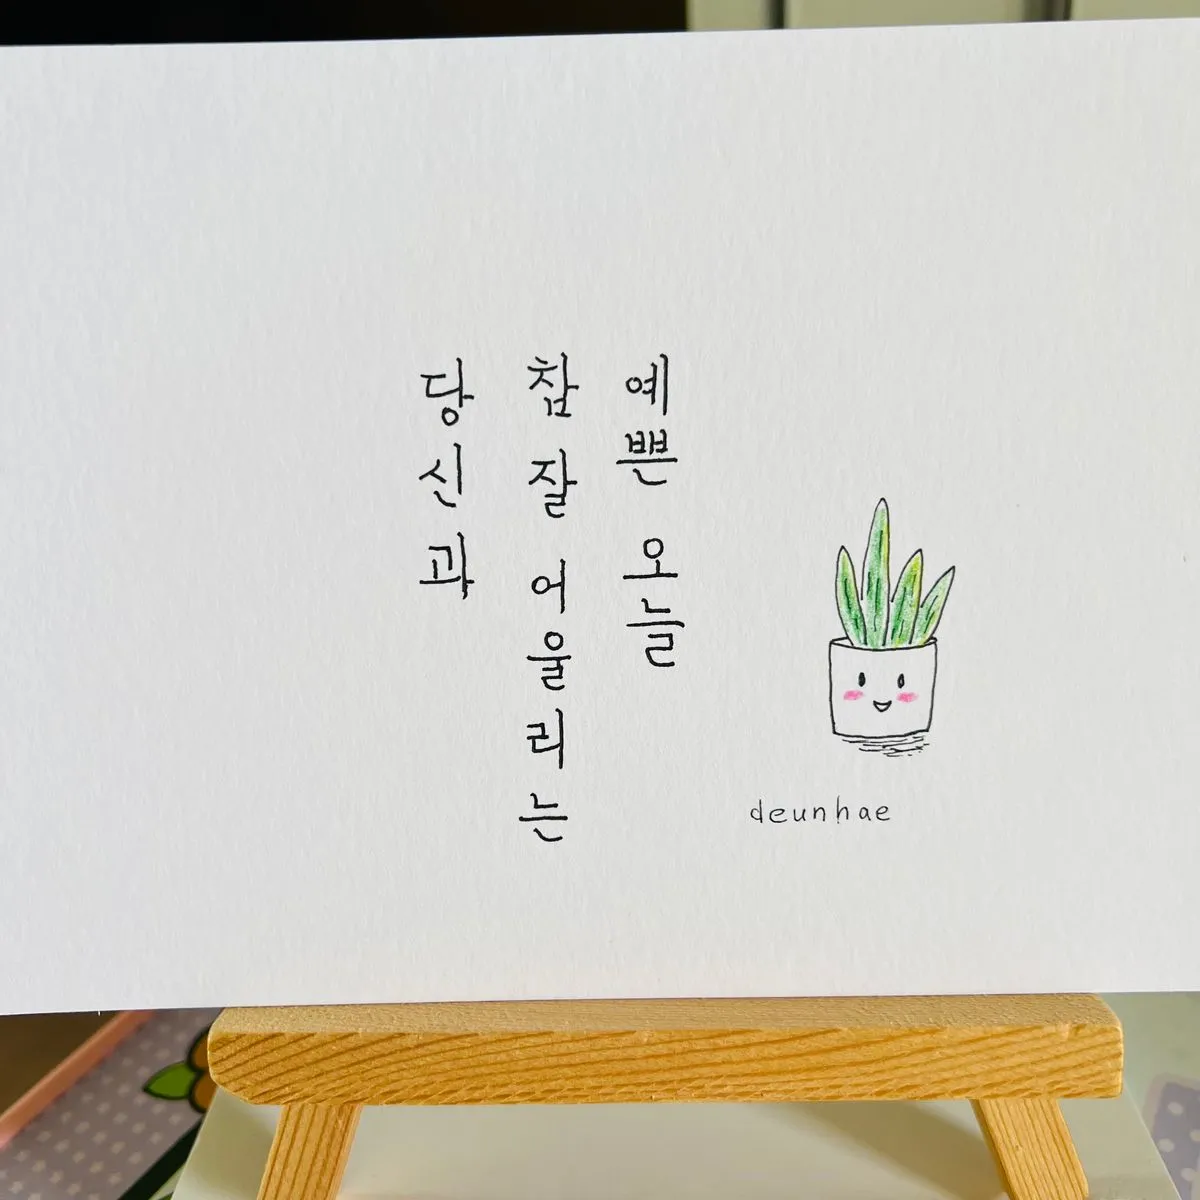 당신과
참 잘 어울리는
예쁜 오늘
deunhae